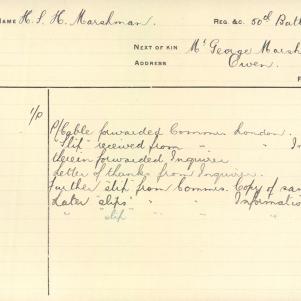 NAME H. S. H. Marshman. REG. &C. 50th Batt
NEXT OF KIN Mr George Marsh
ADDRESS Owen.
1/0
P/Cable forwarded Commis London.
"Slip" received from " " In
Therein forwarded Inquirer
Letter of thanks from Inquirer.
Further "slip" from Commis. Copy of sa
Later "slips" " " Informatio
" "slip" " " "